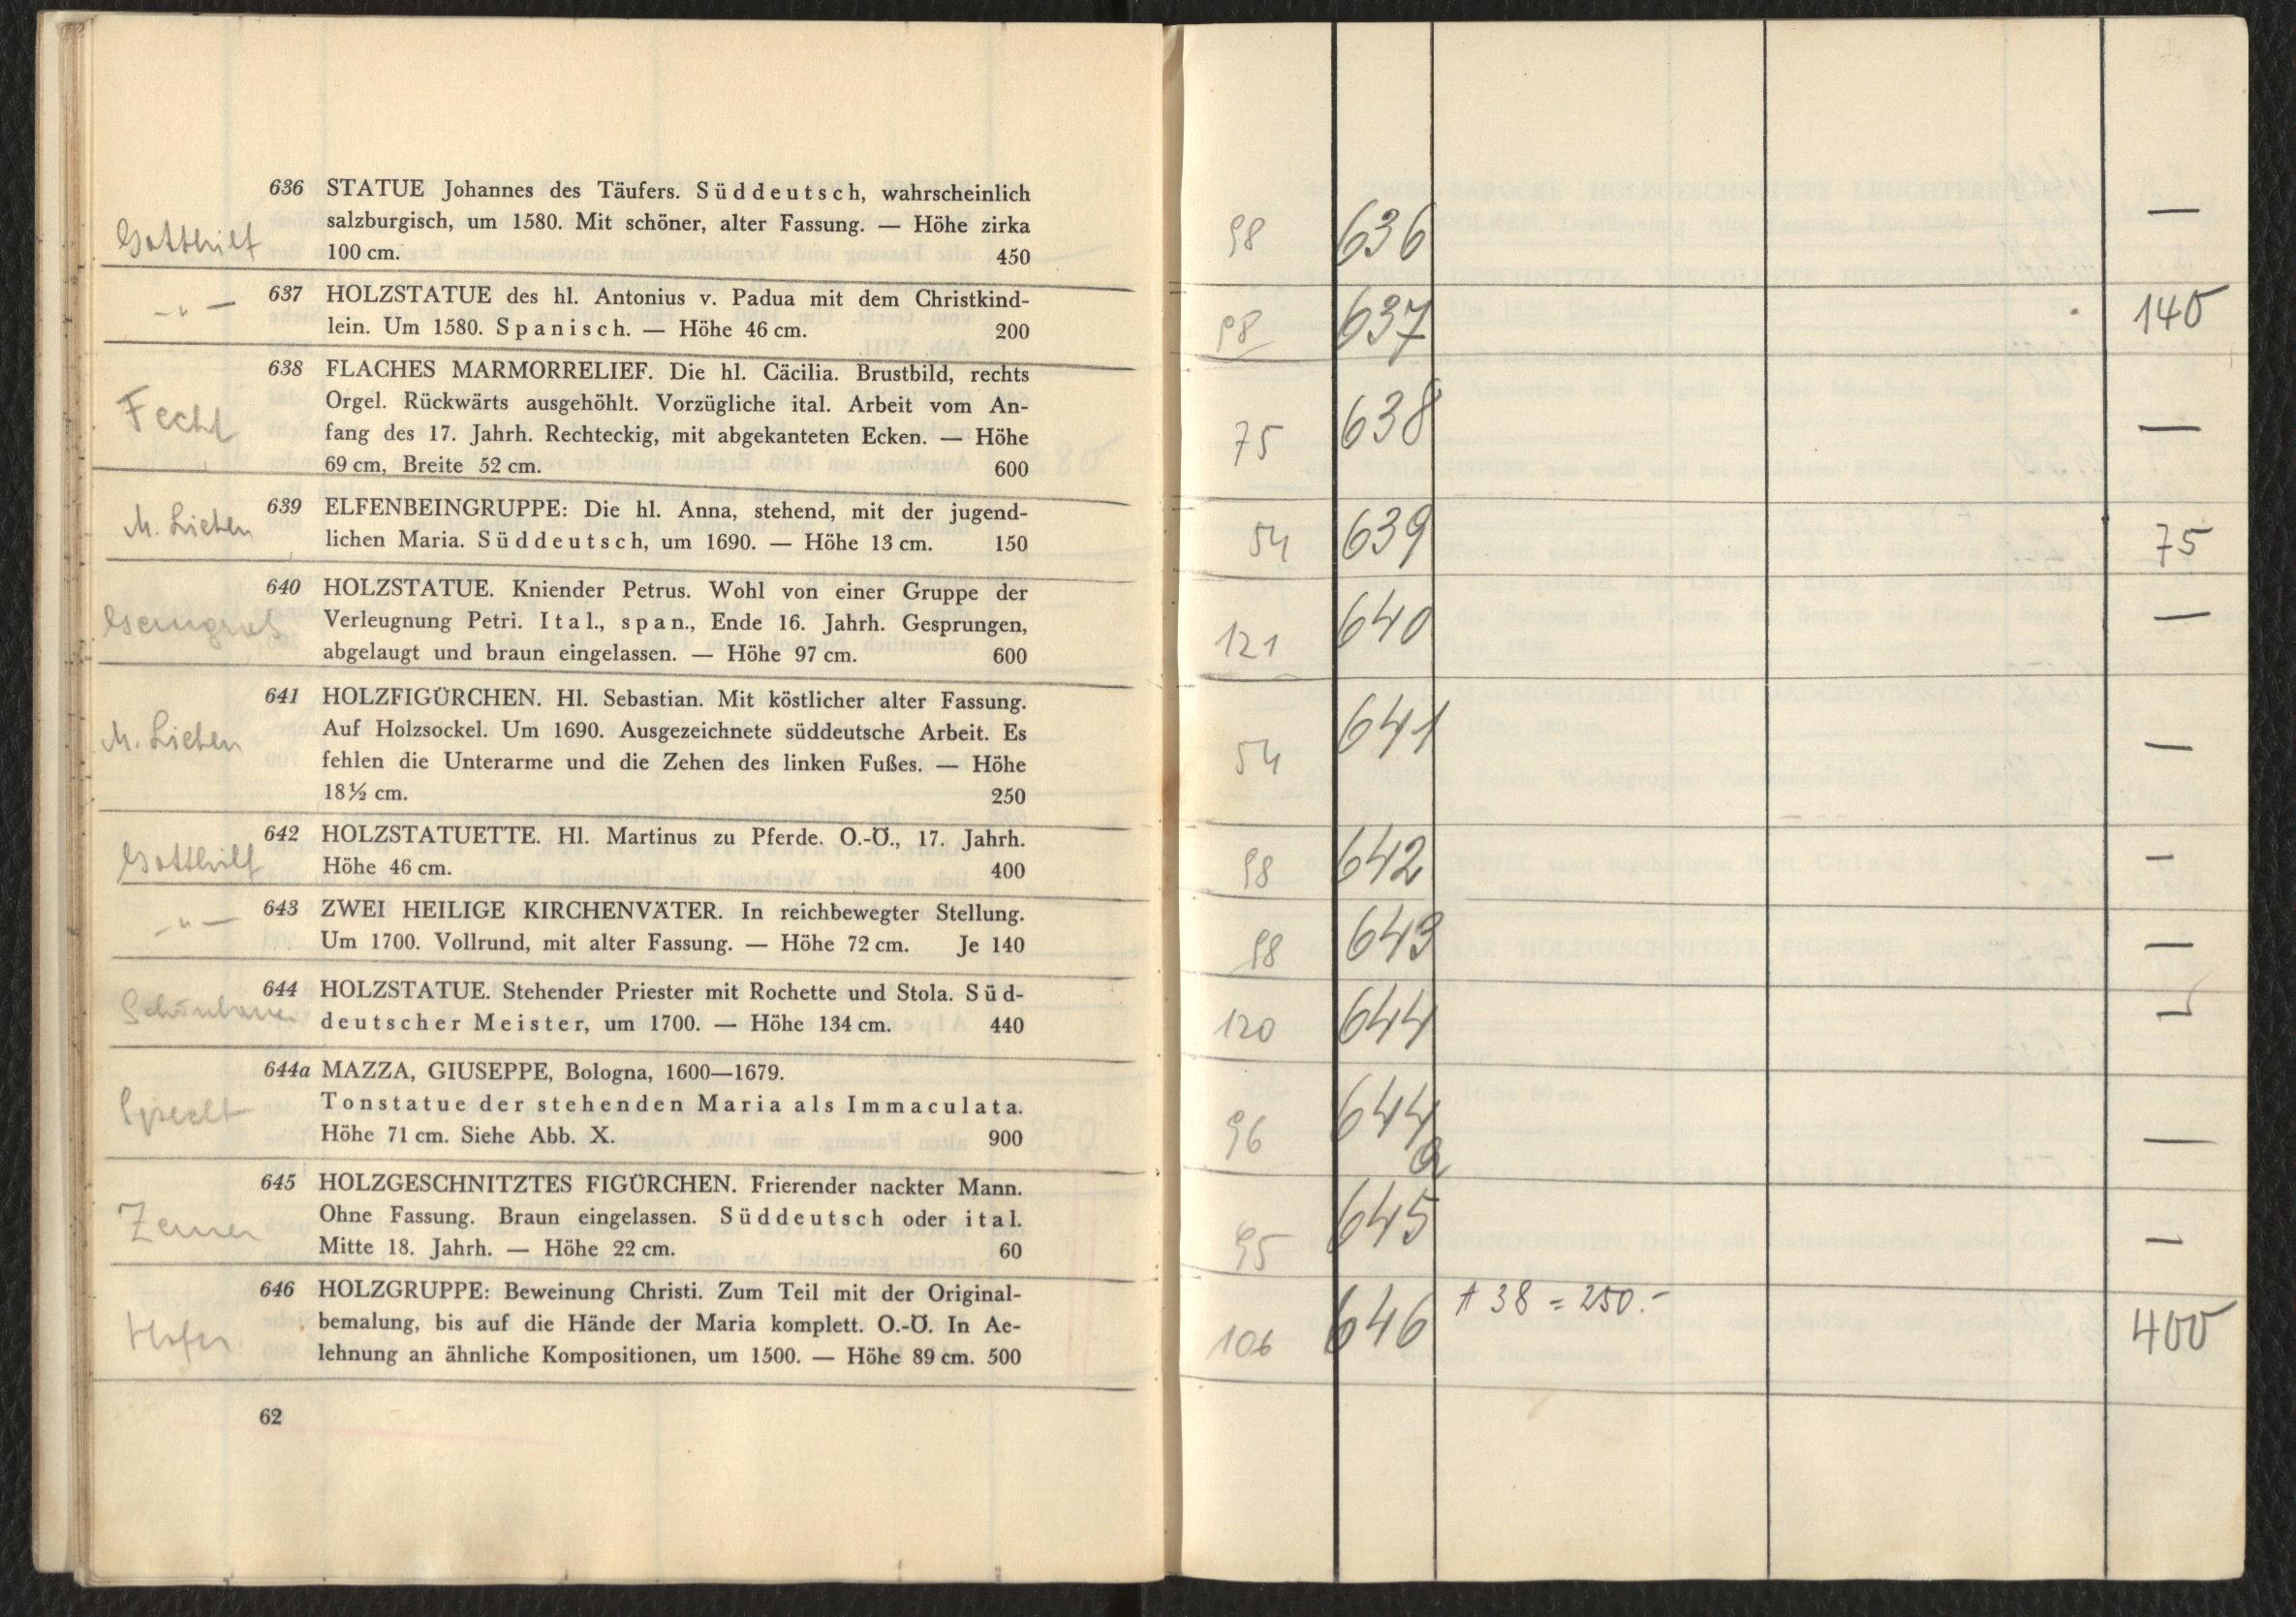 636 STATUE Johannes des Täufers. Süddeutsch, wahrscheinlich
salzburgisch, um 1580. Mit schöner, alter Fassung. — Höhe zirka
Gotthilf 100 cm. 450
-"- 637 HOLZSTATUE des hl. Antonius v. Padua mit dem Christkind-
lein. Um 1580. Spanisch. — Höhe 46 cm. 200
638 FLACHES MARMORRELIEF. Die hl. Cäcilia. Brustbild, rechts
Fecht Orgel. Rückwärts ausgehöhlt. Vorzügliche ital. Arbeit vom An-
fang des 17. Jahrh. Rechteckig, mit abgekanteten Ecken. — Höhe
69 cm, Breite 52 cm. 600
M. Lieben 639 ELFENBEINGRUPPE: Die hl. Anna, stehend, mit der jugend-
lichen Maria. Süddeutsch, um 1690. — Höhe 13 cm. 150
640 HOLZSTATUE. Kniender Petrus. Wohl von einer Gruppe der
Verleugnung Petri. Ital., span., Ende 16. Jahrh. Gesprungen,
abgelaugt und braun eingelassen. — Höhe 97 cm. 600
641 HOLZFIGÜRCHEN. Hl. Sebastian. Mit köstlicher alter Fassung.
M. Lieben Auf Holzsockel. Um 1690. Ausgezeichnete süddeutsche Arbeit. Es
fehlen die Unterarme und die Zehen des linken Fußes. — Höhe
18½ cm. 250
642 HOLZSTATUETTE. Hl. Martinus zu Pferde. O.-Ö., 17. Jahrh.
Gotthilf Höhe 46 cm. 400
-"- 643 ZWEI HEILIGE KIRCHENVÄTER. In reichbewegter Stellung.
Um 1700. Vollrund, mit alter Fassung. — Höhe 72 cm. Je 140
644 HOLZSTATUE. Stehender Priester mit Rochette und Stola. Süd-
deutscher Meister, um 1700. — Höhe 134 cm. 440
644a MAZZA, GIUSEPPE, Bologna, 1600—1679.
Specht Tonstatue der stehenden Maria als Immaculata.
Höhe 71 cm. Siehe Abb. X. 900
645 HOLZGESCHNITZTES FIGÜRCHEN. Frierender nackter Mann.
Zerner Ohne Fassung. Braun eingelassen. Süddeutsch oder ital.
Mitte 18. Jahrh. — Höhe 22 cm. 60
646 HOLZGRUPPE: Beweinung Christi. Zum Teil mit der Original-
Hofer bemalung, bis auf die Hände der Maria komplett. O.-Ö. In Ae-
lehnung an ähnliche Kompositionen, um 1500. — Höhe 89 cm. 500
62
98 636 —
98 637 140
75 638 —
54 639 75
121 640 —
54 641 —
98 642 —
98 643 —
120 644 —
96 644a —
95 645 —
106 646 † 38 = 250.- 400